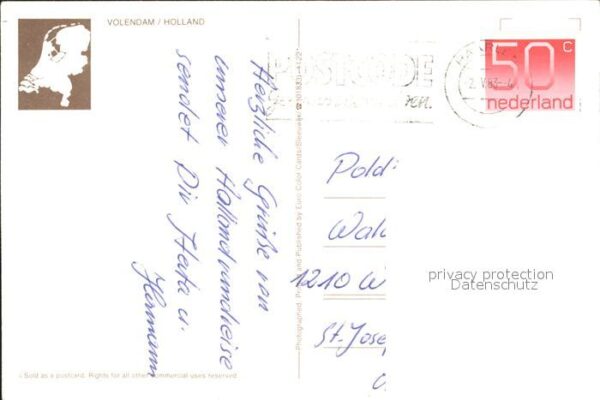 VOLENDAM / HOLLAND
Herzliche Grüße von
unserer Hollandrundreise
sendet Dir Herta u.
Hermann
Photographed, Printed and Published by Euro Color Cards/Sleeuwijk ☎ (01833)-4122
POSTCODE
2.V.83-
50 c
nederland
Poldi
Wald
1210 W
St. Josep
privacy protection
Datenschutz
Sold as a postcard. Rights for all other commercial uses reserved.